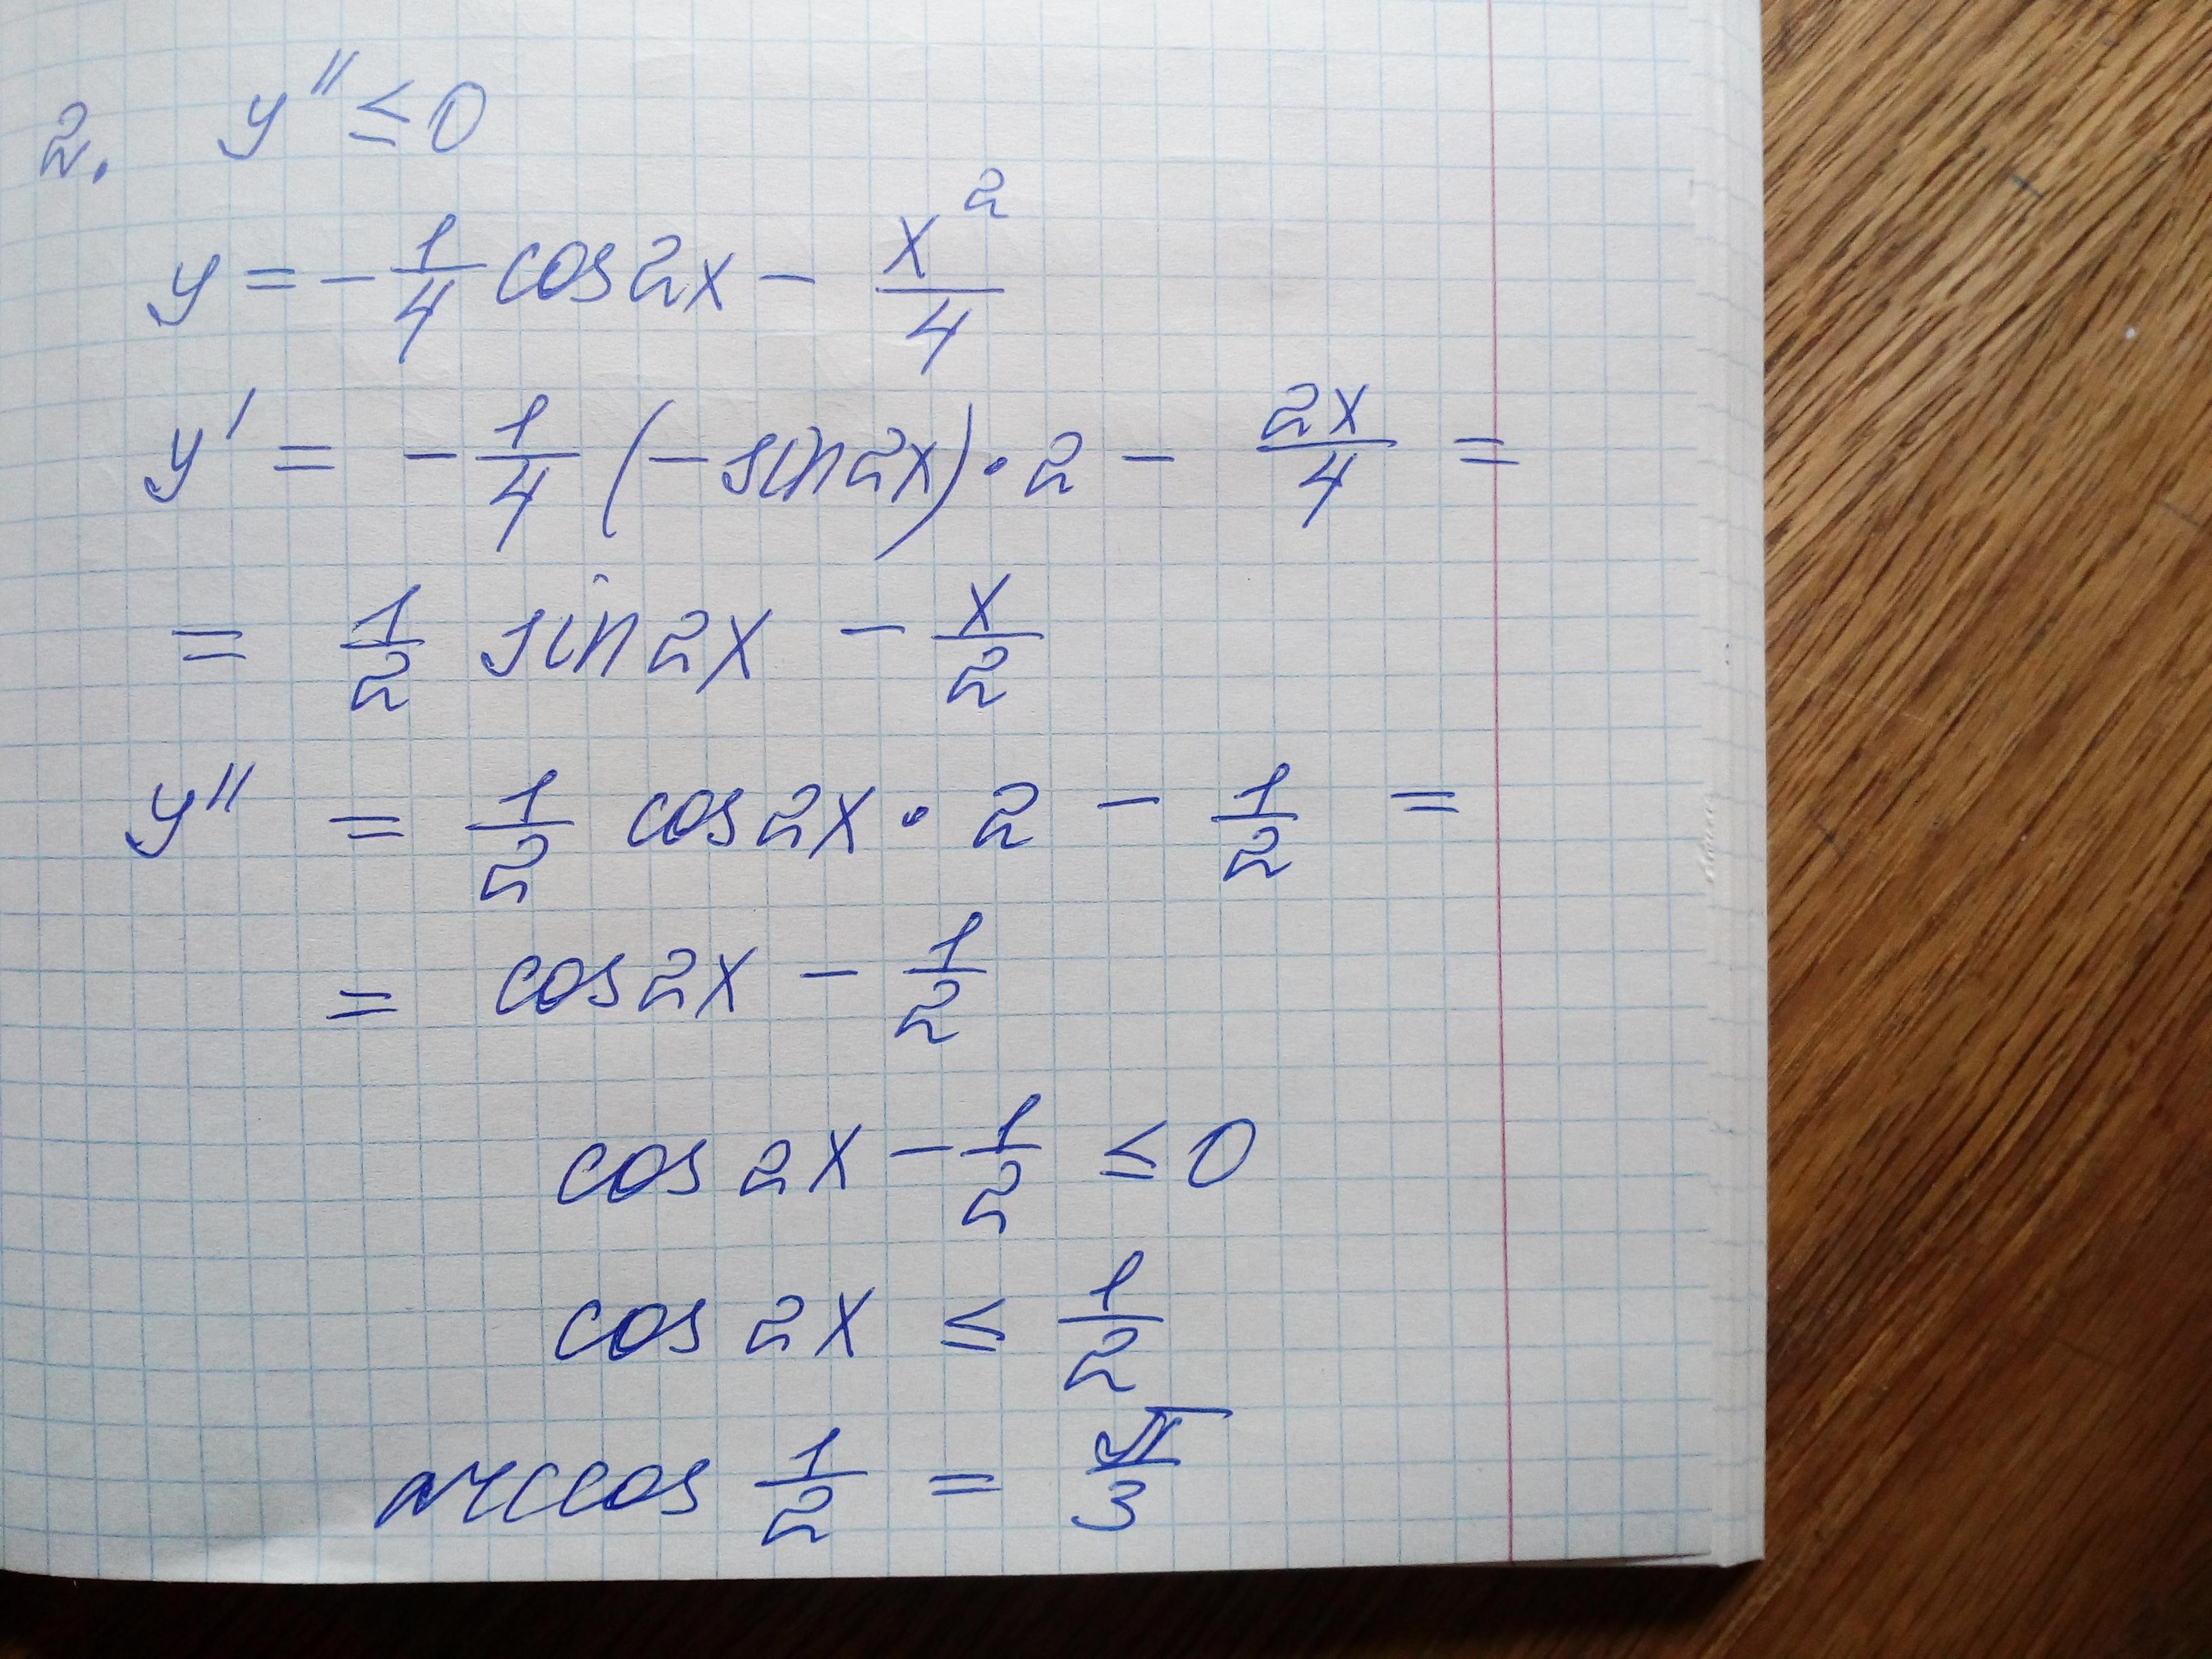 2. y'' ≤ 0
y = - 1/4 cos2x - x²/4
y' = - 1/4 (-sin2x) · 2 - 2x/4 =
= 1/2 sin2x - x/2
y'' = 1/2 cos2x · 2 - 1/2 =
= cos2x - 1/2
cos 2x - 1/2 ≤ 0
cos 2x ≤ 1/2
arccos 1/2 = π/3